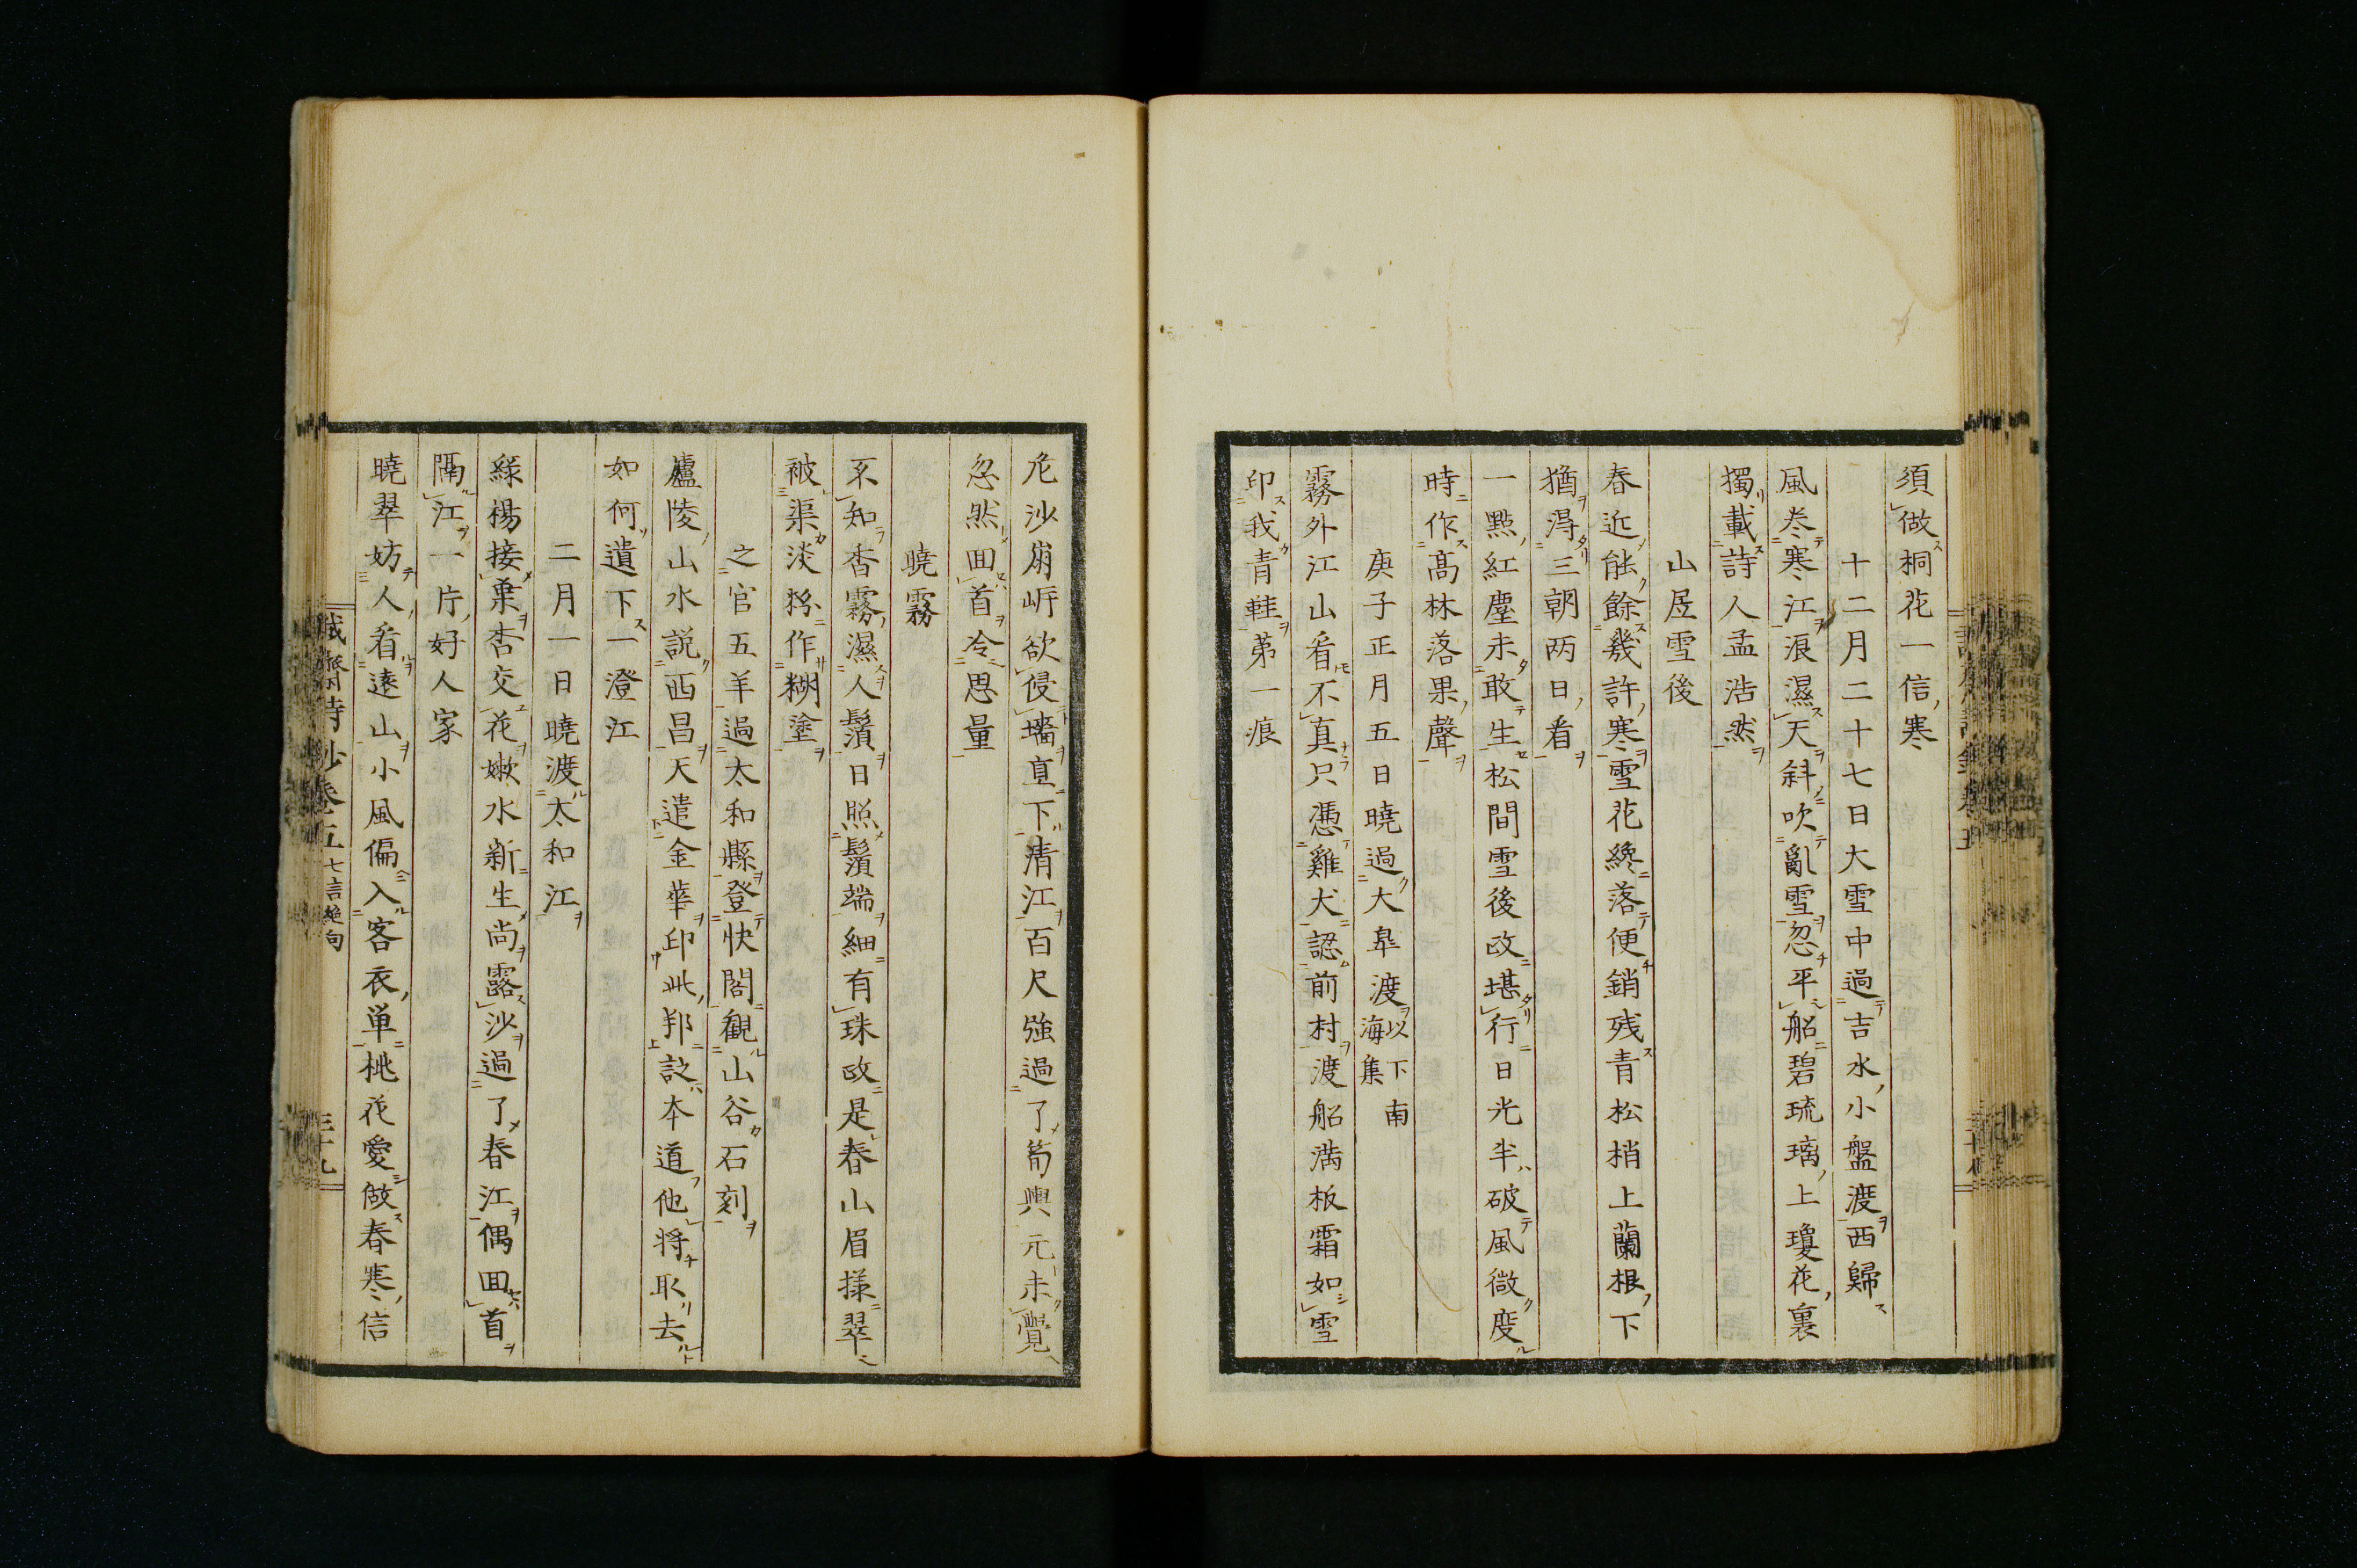 須做桐花一信寒
十二月二十七日大雪中過吉水小盤渡西歸
風巻寒江浪濕天斜吹亂雪忽平船碧琉璃上瓊花裏
獨載詩人孟浩然
山居雪後
春近能餘幾許寒雪花纔落便銷残青松梢上蘭根下
猶得三朝両日看
一點紅塵未敢生松間雪後政堪行日光半破風微度
時作高林落果聲
庚子正月五日曉過大皐渡以下南海集
霧外江山看不真只憑雞犬認前村渡船満板霜如雪
印我青鞋第一痕
危沙崩岸欲侵墻直下清江百尺強過了筍輿元未覺
忽然回首令思量
曉霧
不知香霧濕人鬚日照鬚端細有珠政是春山眉様翠
被渠淡粉作糊塗
之官五羊過太和縣登快閣觀山谷石刻
廬陵山水説西昌天遣金華印此邦
如何遺下一澄江
二月一日曉渡太和江
緑楊接葉杏交花嫩水新生尚露沙過了春江偶回首
隔江一片好人家
曉翠妨人看遠山小風偏入客衣単桃花愛做春寒信
誠齋詩抄巻五 七言絶句
三十九